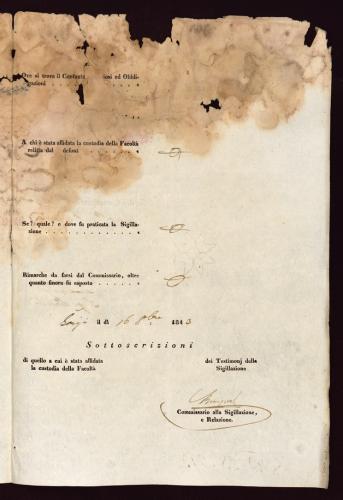 Ove si trova il Contante ed Obbli-
gazioni
A chi è stata affidata la custodia della Facoltà
relitta dal defunt
Se? quale? e dove fu praticata la Sigilla-
zione
Rimarche da farsi dal Commissario, oltre
quanto finora fu esposto
il dì 16 8bre 1843
Sottoscrizioni
di quello a cui è stata affidata
la custodia della Facoltà
dei Testimonj della
Sigillazione
Commissario alla Sigillazione,
e Relazione.